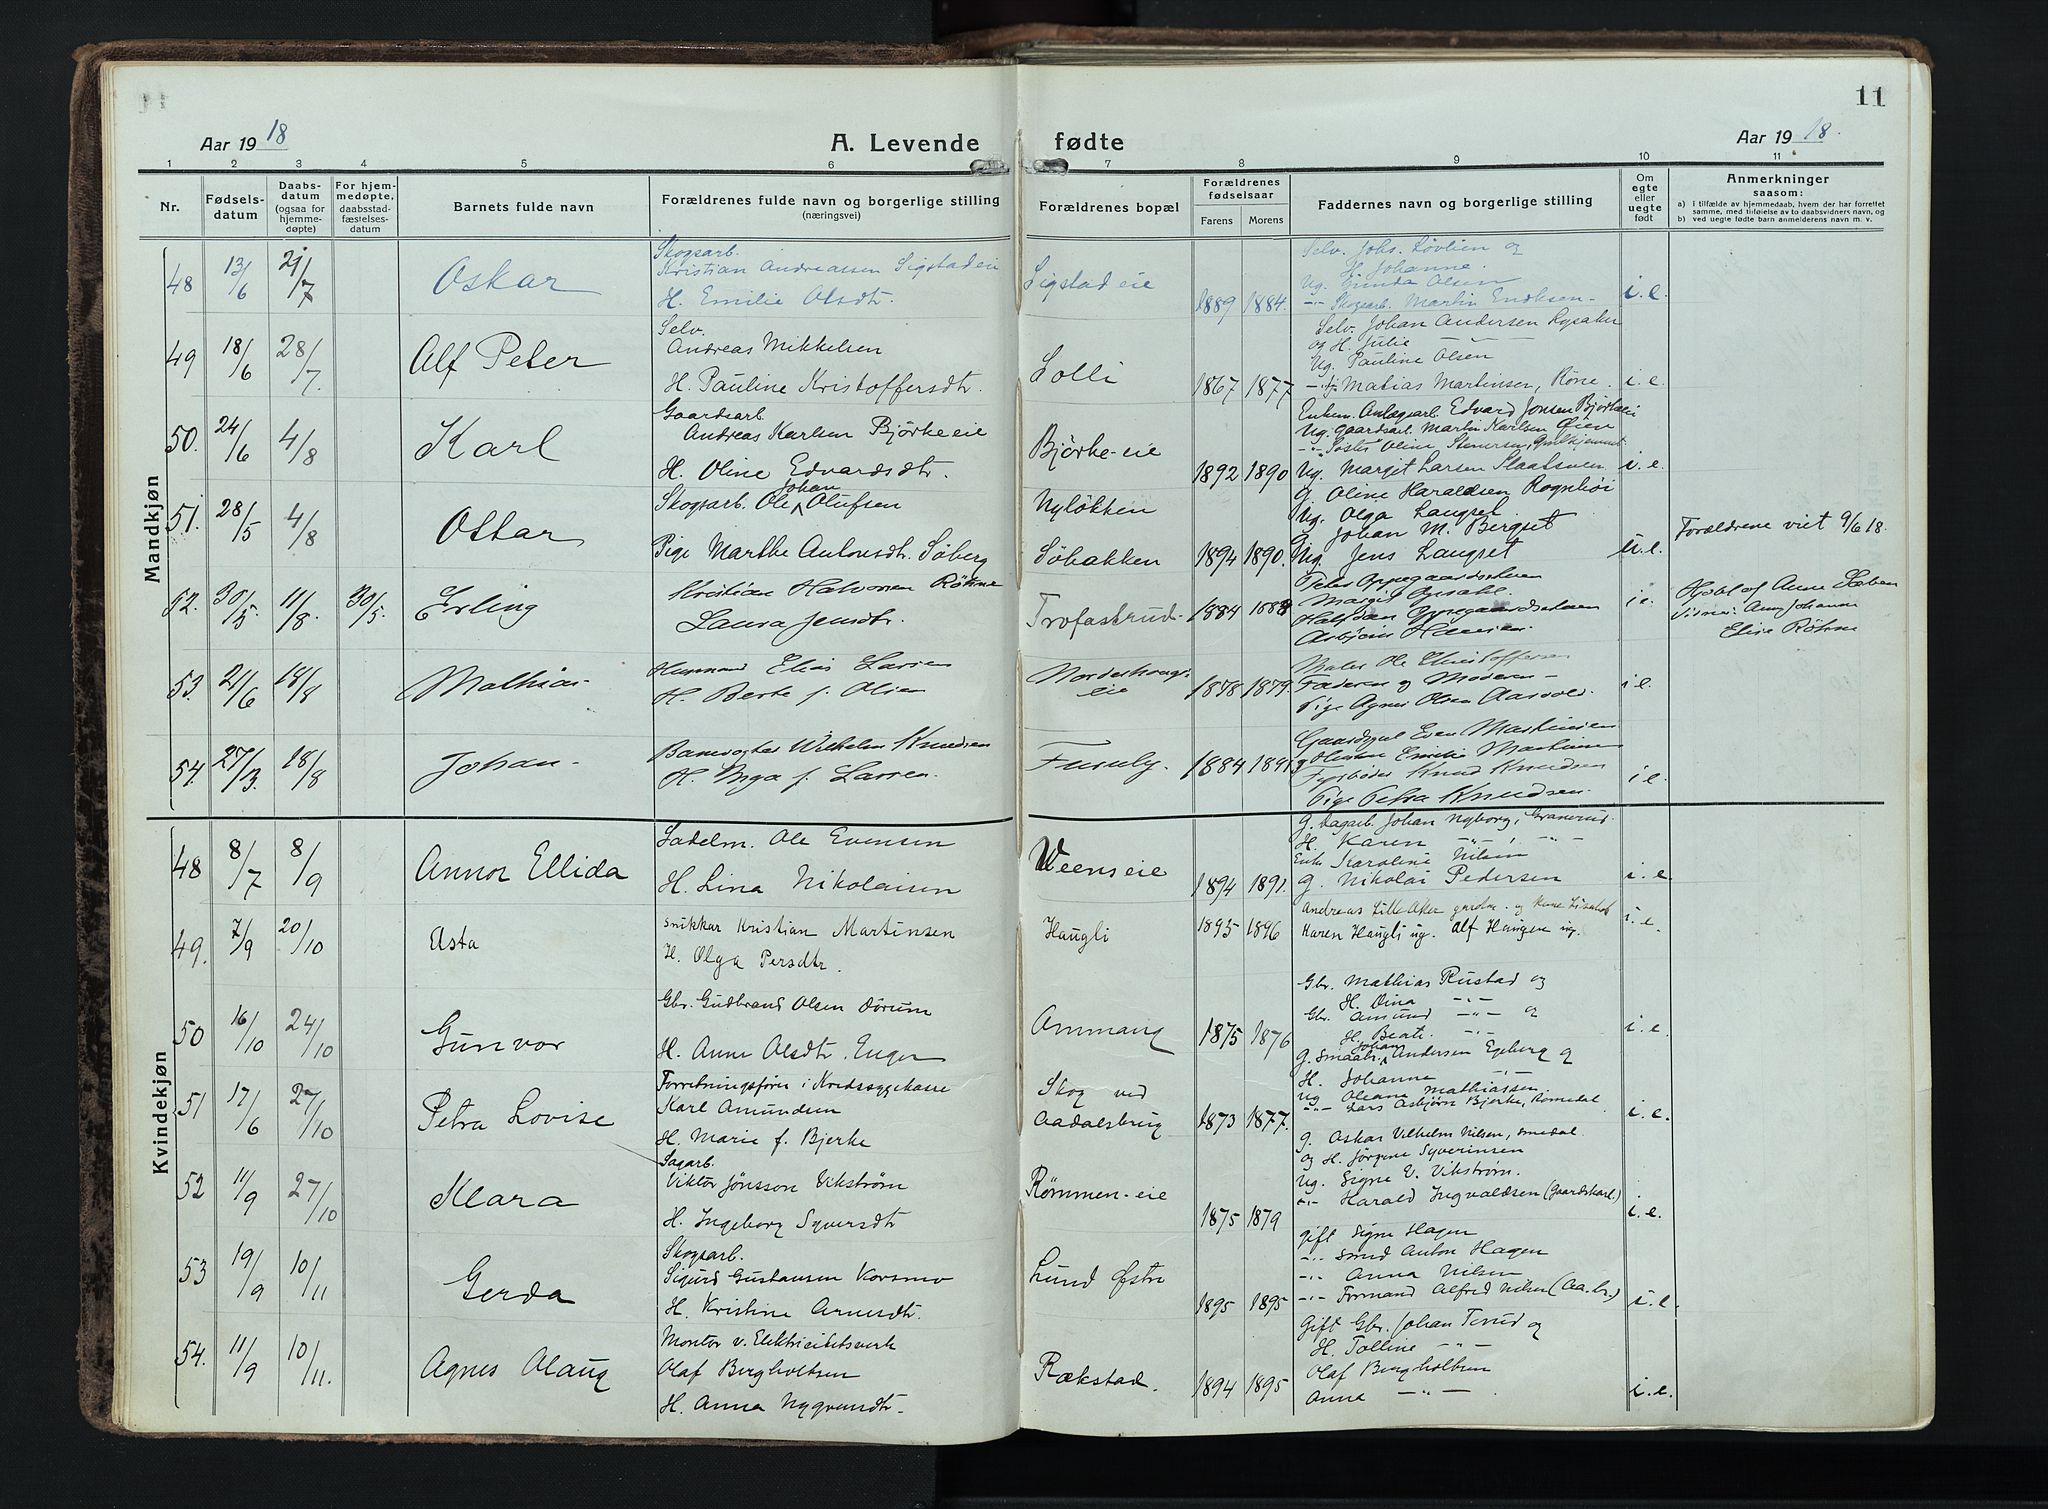 11
Aar 1918
A. Levende fødte
Aar 1918.
1 2 3 4 5 6 7 8 9 10 11
Nr.
Fødselsdatum
Daabsdatum (ogsaa for hjemmedøpte)
For hjemmedøpte, daabsstadfæstelsesdatum
Barnets fulde navn
Forældrenes fulde navn og borgerlige stilling (næringsvei)
Forældrenes bopæl
Forældrenes fødselsaar
Farens Morens
Faddernes navn og borgerlige stilling
Om egte eller uegte født
Anmerkninger saasom:
a) i tilfælde av hjemmedaab, hvem der har forrettet samme, med tilføielse av to daabsvidners navn, og
b) ved uegte fødte barn anmelderens navn m. v.
Mandkjøn
48 13/6 21/7 Oskar
Skogsarb.
Kristian Andreassen Sigstadeie
H. Emilie Olsdtr.
Sigstad eie 1889 1884.
Selv. Johs. Løvlien og
H. Johanne.
Ug. Gunda Olsen
-"- Skogsarb. Martin Eriksen-
i. e.
49 18/6 28/7. Alf Peter
Selv.
Andreas Mikkelsen
H. Pauline Kristoffersdtr.
Solli 1867 1877
Selv. Johan Andersen Lysaker
og H. Julie -"-
Ug. Pauline Olsen
Matias Martinsen, Kone.
i. e.
50. 24/6 4/8 Karl
Gaardsarb.
Andreas Karlsen Bjørke eie
H. Oline Edvardsdtr.
Bjørke-eie 1892 1890
Enkem. Anlægsarb. Edvard Jonsen Bjørkeeie
Ug. Gaardsarb. Martin Karlsen Øien
Ug. Margit Larsen Slaatsveen
i. e.
51. 28/5 4/8 Ottar
Skogsarb. Ole Johan Olufsen
Pige Marthe Antonsdtr. Søberg
Nyløkken
Søbakken 1894 1890.
G. Oline Haraldsen Rognhøi
Ug. Olga Laugset.
G. Johan M. Bergset
Ug. Jens Laugset
u. e.
Forældrene viet 9/6 18.
52. 30/5 11/8. 30/5. Erling
Kristian Halvorsen Røhne
Laura Jensdtr.
Trofastrud- 1884 1888
Peter Oppegaardshaven
Margit Opsahl
Halfdan Oppegaardshaven
Asbjørn Hansen
i e.
Hjdbt af Anne Sæben
Vidner: Anny Johanne
Elise Røhne
53. 21/6 18/8 Mathias-
Husmand Elias Larsen
H. Berte f. Olsen
Norderhougseie 1878 1879.
Maler Ole Christoffersen
Faderen og Moderen-
Pige Agnes Olsen Aasvold
i e.
54. 27/3. 18/8 Johan-
Banevogter Wilhelm Knudsen
H. Inga f. Larsen.
Furuly. 1884 1891
Gaardbr. Even Martinsen
Hustru Emilie Martinsen
Fyrbøder Knud Knudsen
Pige Petra Knudsen.
i e.
Kvindekjøn
48 8/7 8/9 Annor Ellida
Sadelm. Ole Evensen
H. Lina Nikolaisen
Veenseie 1894 1891.
G. Dagarb. Johan Nyborg, Granerud
H. Karen -"-, -"-
Enke Karoline Nilsen
G. Nikolai Pedersen
i. e.
49. 7/9 20/10 Asta
Snikkar Kristian Martinsen
H. Olga Persdtr.
Haugli 1895 1896
Andreas Lille-Aker gardm. og Kone Lisabet
Karen Haugli ug. Alf Haugen ug.
i. e.
50 16/10 24/10 Gunvor
Gbr. Gudbrand Olsen Dørum
H. Anne Olsdtr. Enger
Ammang 1875 1876
Gbr. Mathias Rustad og
H. Dina -"-
Gbr. Amund -"- og
H. Beate. -"-
i. e.
51 17/6 27/10 Petra Lovise
Forretningsfører i Kredssygekasse
Karl Amundsen
H. Marie f. Bjerke
Skog ved
Aadalsbrug 1873 1877.
G. Smaabr. Johan Andersen Egeberg og
H. Johanne -"-
Ug Oleane Mathiassen
-"- Lars Asbjørn Bjerke, Romedal.
i. e.
52 11/9 27/10 Klara
Sagarb.
Viktor Jönsson Vikstrøm
H. Ingeborg Syversdtr
Rømmen-eie 1875 1879
G. Oskar Vilhelm Nilsen, smedal.
og H. Jørgine Syverinsen
Ug. Signe V. Vikstrøm.
-"- Harald Ingvaldsen (Gaardskarl.)
i. e.
53 19/9 10/11 Gerda
Skogsarb.
Sigurd Gustavsen Korsmo
H. Kristine Arnesdtr.
Lund Østre 1895 1895
Gift Signe Hagen
-"- Smed Anton Hagen
-"- Anna Nilsen
-"- Formand Alfred Nilsen (Aa.br.)
i. e.
54. 11/9 10/11. Agnes Olaug
Montør v. Elektricitetsverk
Olaf Bergholtsen
H. Anna Nygrundtr-
Rækstad. 1894 1895
Gift Gbr. Johan Terud og
H. Tolline -"-
Olaf Bergholtsen
Anne -"-
i. e.